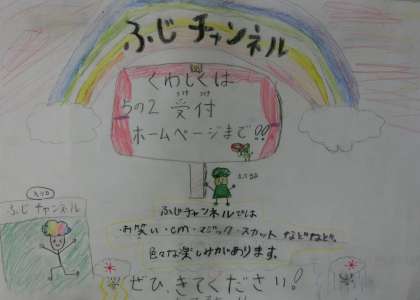 ふじチャンネル
くわしくは
5の2 受付
うけつけ
ホームページまで!!
ふじチャンネル
ふじチャンネルでは
・お笑い・CM・マジック・スカット などなど、
色々な楽しみがあります。
ぜひ、きてください!